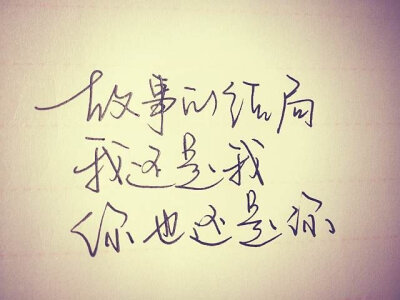 故事的结局
我还是我
你也还是你